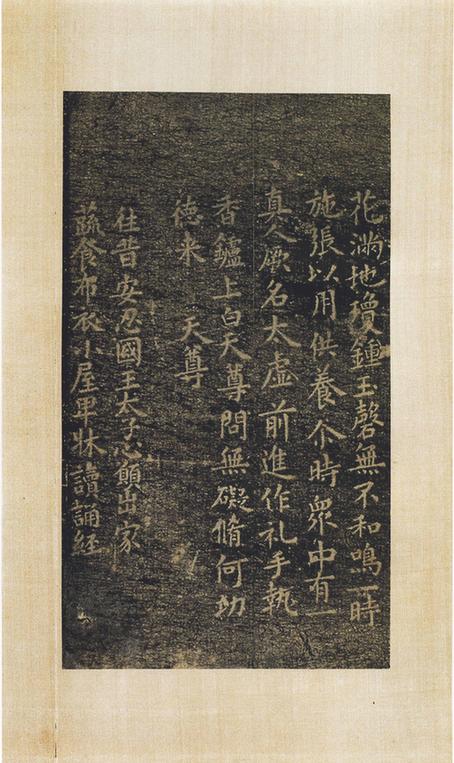 花滿地瓊鍾玉磬無不和鳴一時
施張以用供養尒時眾中有一
真人厥名太虛前進作礼手執
香鑪上白天尊問無礙脩何功
德来　天尊
往昔安忍國王太子心願出家
蔬食布衣小屋卑牀讀誦經